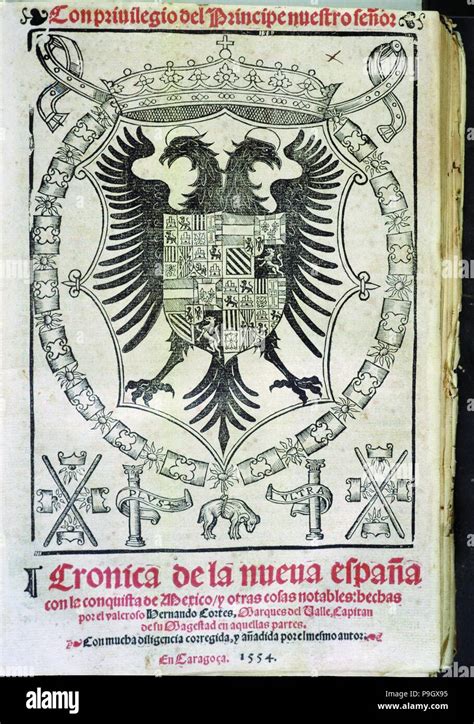 Con privilegio del Principe nuestro señor
PLVS
VLTRA
Cronica de la nueva españa
con la conquista de Mexico, y otras cosas notables: hechas
por el valeroso Hernando Cortes, Marques del Valle, Capitan
de su Magestad en aquellas partes.
Con mucha diligencia corregida, y añadida por el mesmo autor.
En Caragoça. 1554.
alamy
Image ID: P9GX95
www.alamy.com